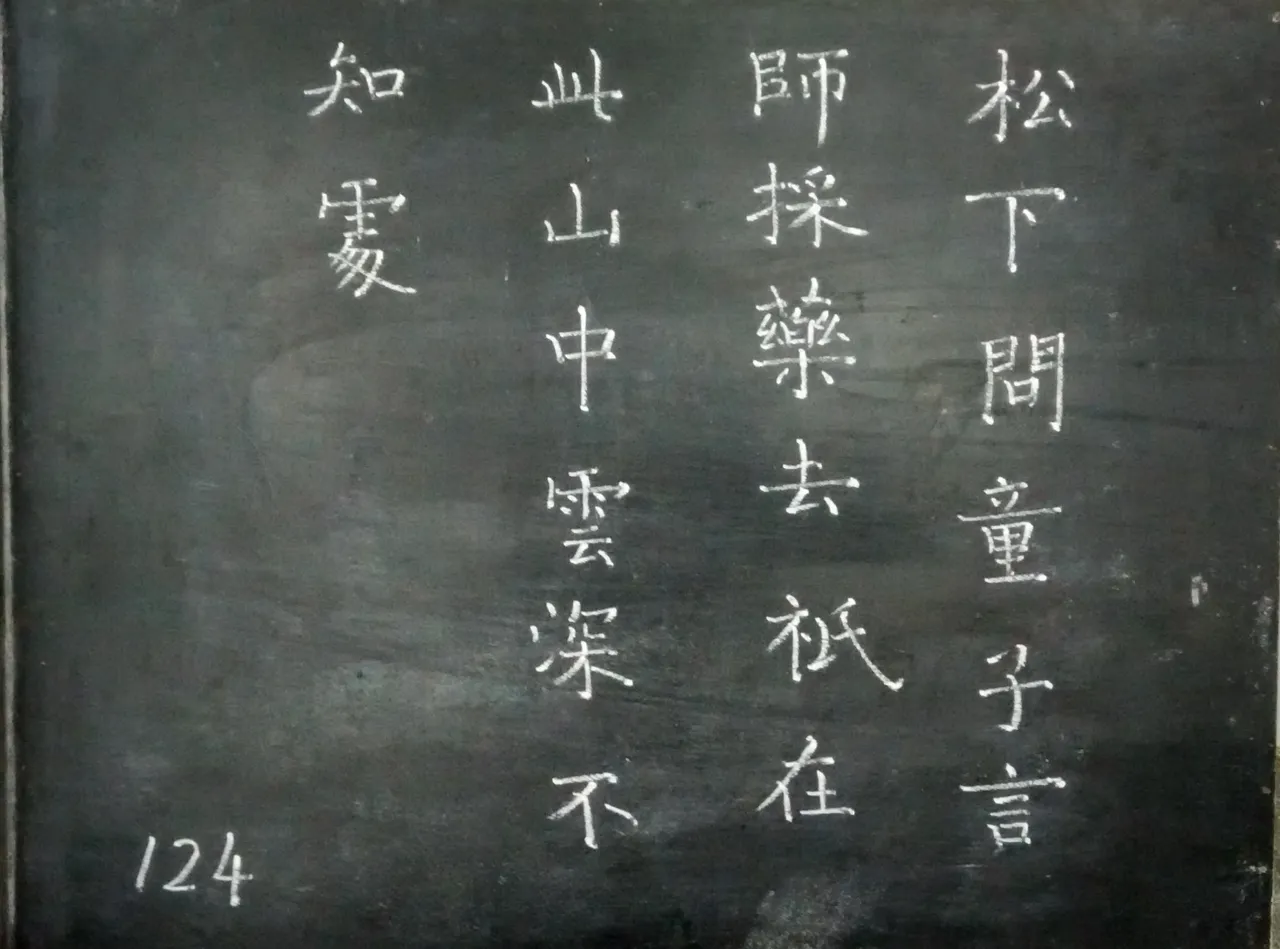 松下問童子言
師採藥去祇在
此山中雲深不
知處
124